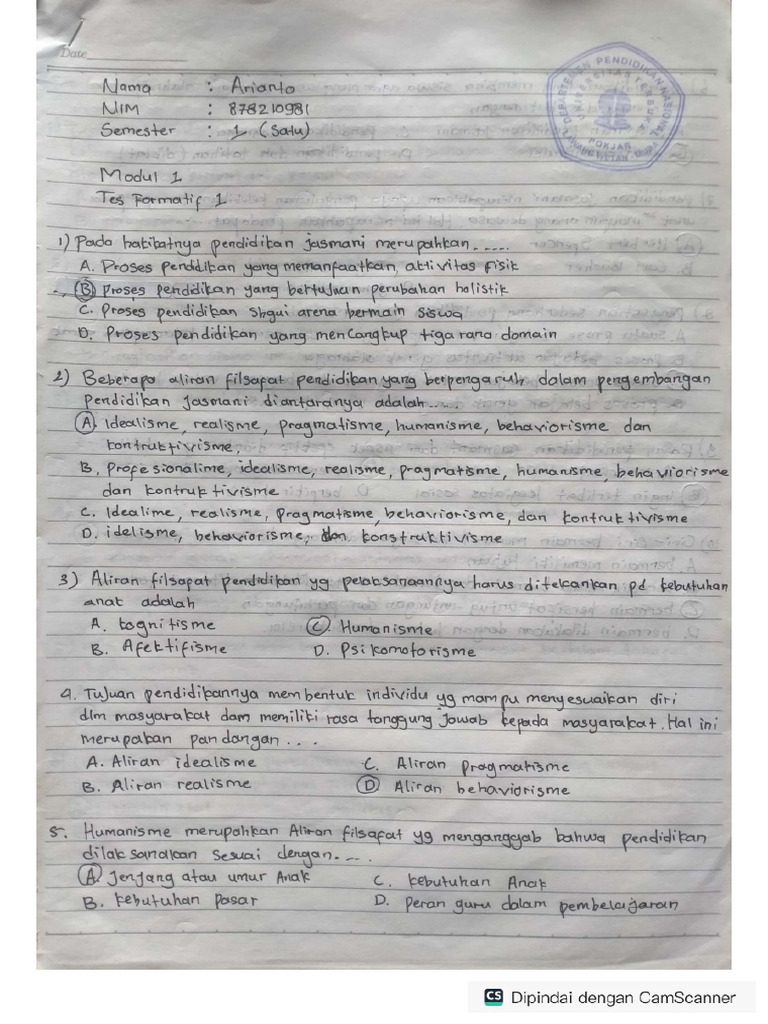 Date
Nama : Arianto
NIM : 878210981
Semester : 1 (Satu)
DEPARTEMEN PENDIDIKAN NASIONAL
UNIVERSITAS TERBUKA
POKJAR
Modul 1
Tes Formatif 1
1) Pada hakikatnya pendidikan jasmani merupahkan......
A. Proses pendidikan yang memanfaatkan aktivitas fisik
B. Proses pendidikan yang bertujuan perubahan holistik
C. Proses pendidikan sbgui arena bermain siswa
D. Proses pendidikan yang mencangkup tiga rana domain
2) Beberapa aliran filsafat pendidikan yang berpengaruh dalam pengembangan
pendidikan jasmani diantaranya adalah......
A. Idealisme, realisme, pragmatisme, humanisme, behaviorisme dan
kontruktivisme,
B. Profesionalime, idealisme, realisme, pragmatisme, humanisme, behaviorisme
dan kontruktivisme
C. Idealime, realisme, pragmatisme, behaviorisme, dan kontruktivisme
D. idelisme, behaviorisme, dan konstruktivisme
3) Aliran filsafat pendidikan yg pelaksanaannya harus ditekankan pd kebutuhan
anak adalah
A. kognitisme C. Humanisme
B. Afektifisme D. Psikomotorisme
4. Tujuan pendidikannya membentuk individu yg mampu menyesuaikan diri
dlm masyarakat dam memiliki rasa tanggung jawab kepada masyarakat. Hal ini
merupakan pandangan...
A. Aliran idealisme C. Aliran pragmatisme
B. Aliran realisme D. Aliran behaviorisme
5. Humanisme merupahkan Aliran filsafat yg menganggab bahwa pendidikan
dilaksanakan sesuai dengan....
A. Jenjang atau umur Anak C. kebutuhan Anak
B. kebutuhan pasar D. peran guru dalam pembelajaran
CS Dipindai dengan CamScanner